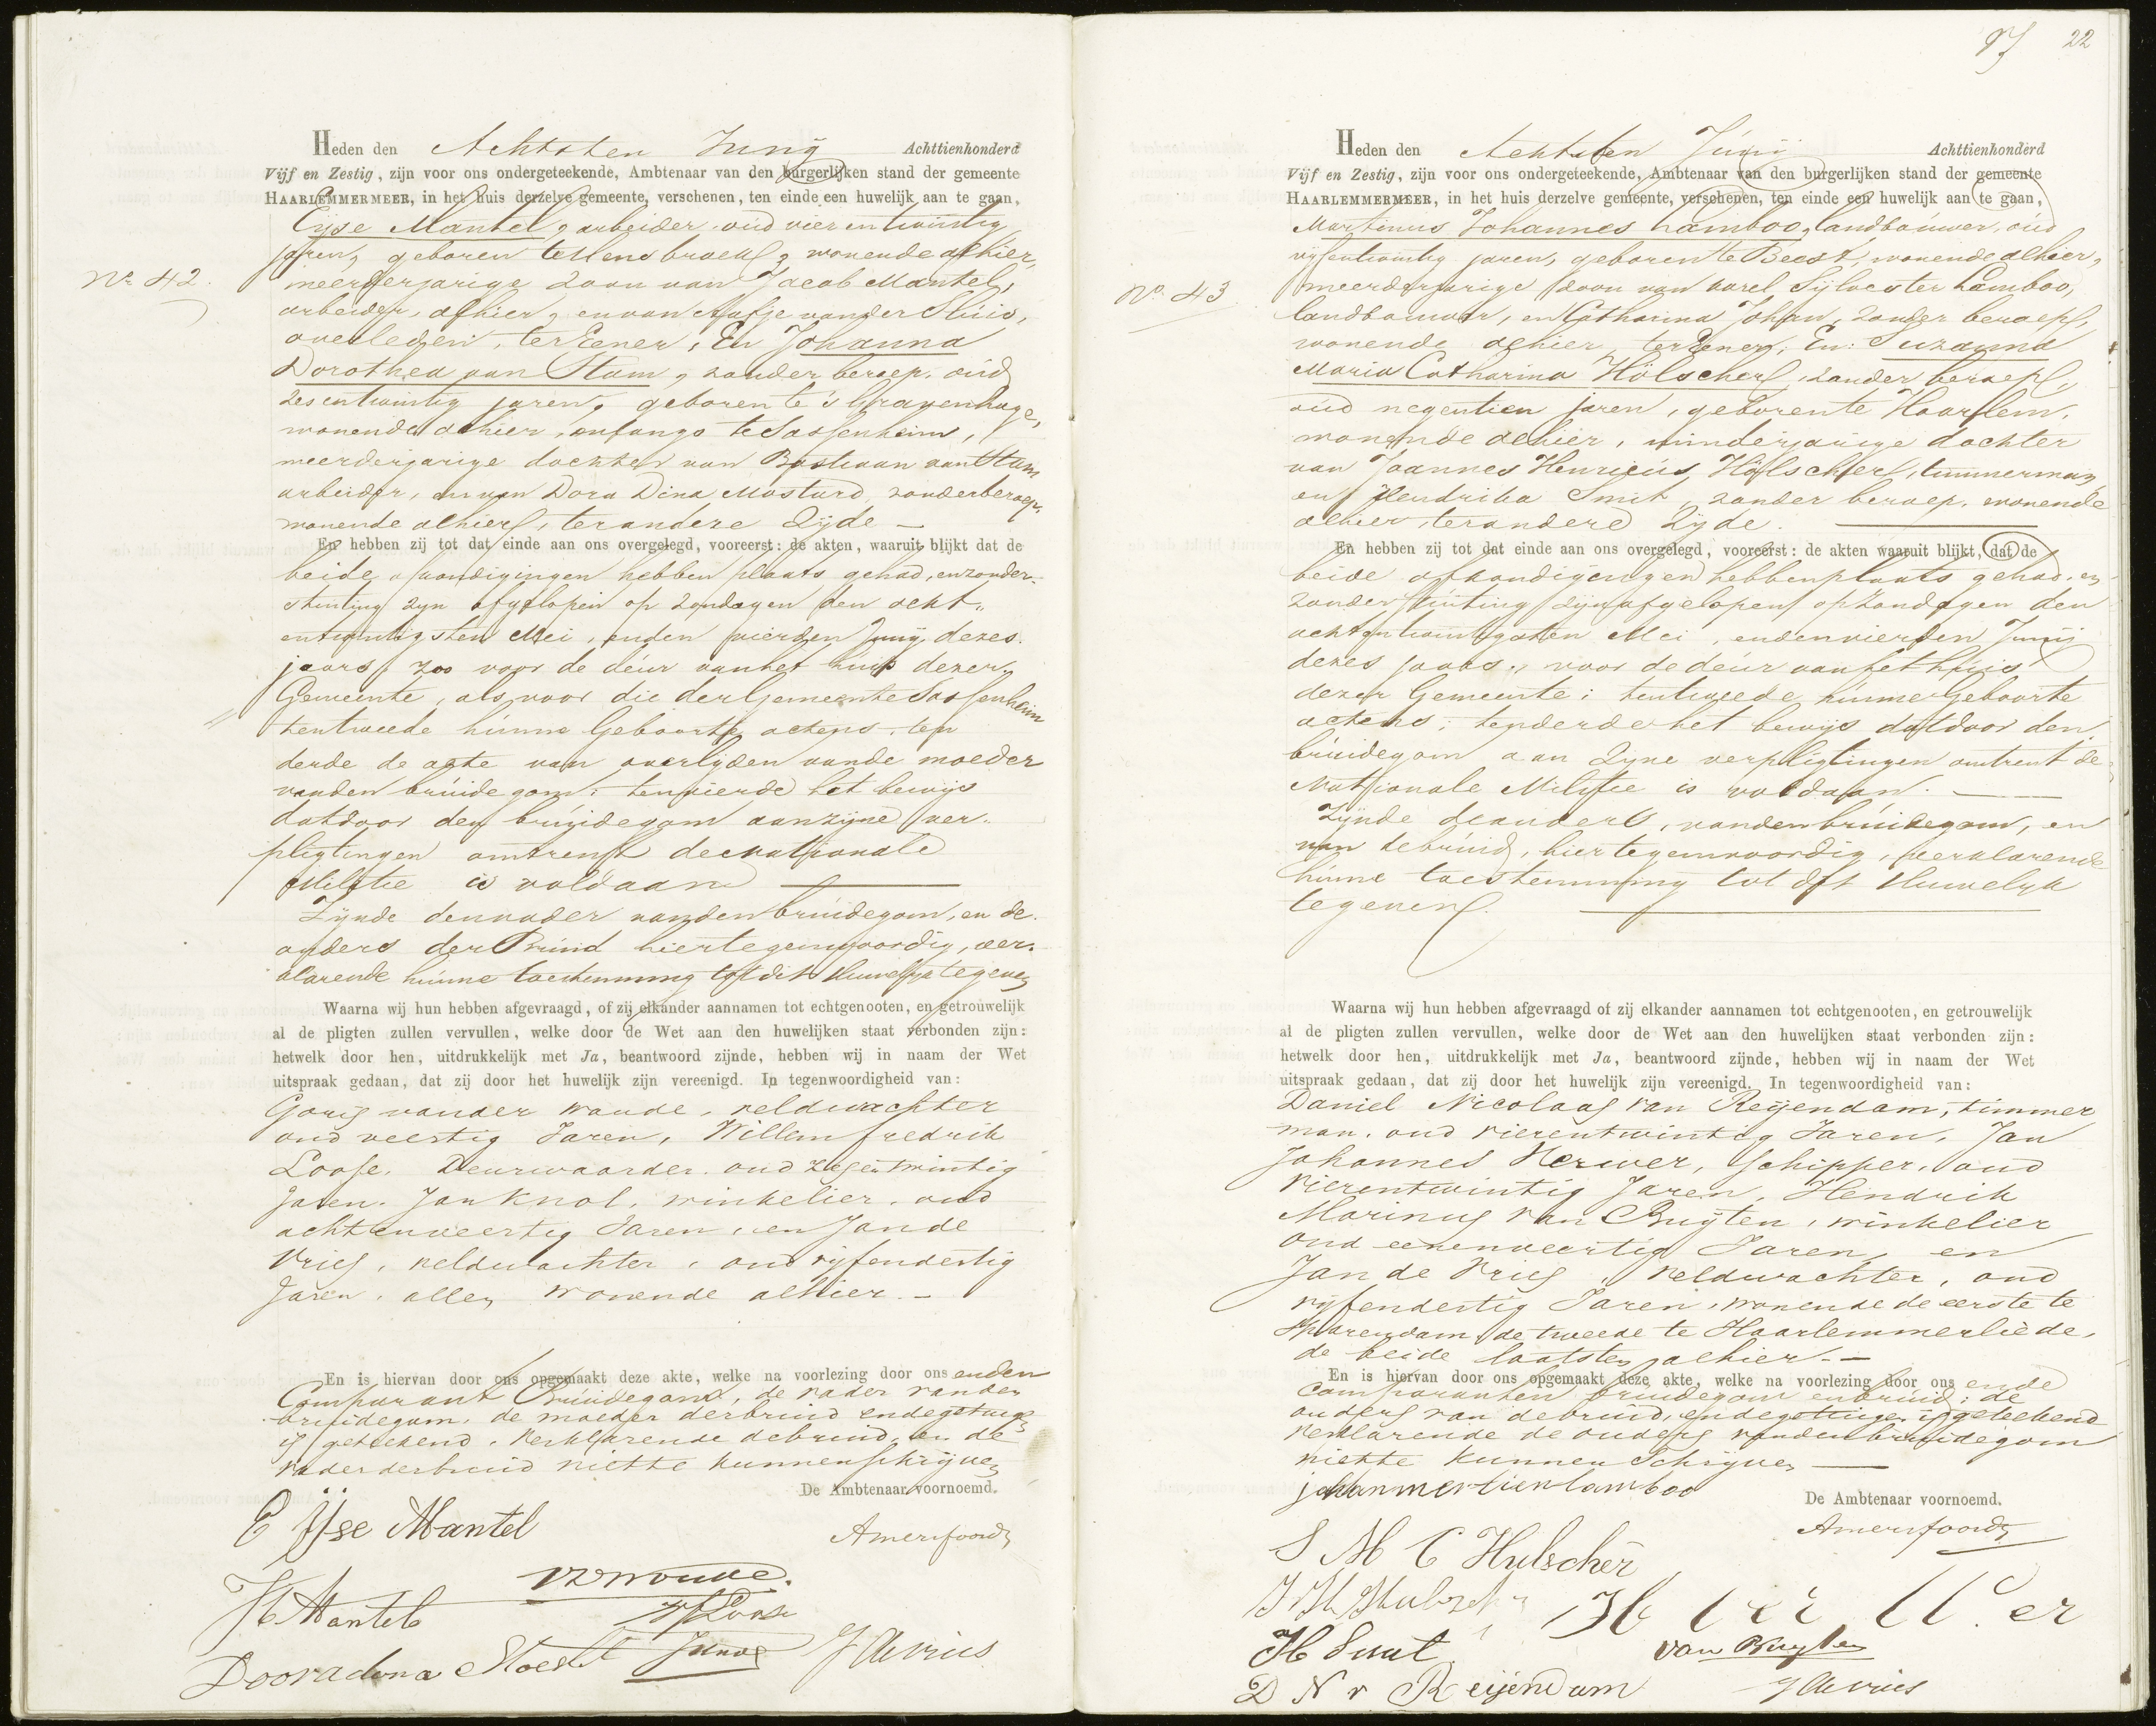 Heden den Achtsten Junij Achttienhonderd
Vijf en Zestig, zijn voor ons ondergeteekende, Ambtenaar van den burgerlijken stand der gemeente
HAARLEMMERMEER, in het huis derzelve gemeente, verschenen, ten einde een huwelijk aan te gaan,
Eijse Mantel, arbeider oud vier en twintig
jaren, geboren te Mens broek, wonende alhier,
No 42.
meerderjarige zoon van Jacob Mantel,
arbeider, alhier, en van Aafje van der Sluis,
overleden, ter Eener, En Johanna
Dorothea van Stam, zonder beroep, oud
zes en twintig jaren, geboren te 's Gravenhage,
wonende alhier, onlangs te Sassenheim,
meerderjarige dochter van Bastiaan van Stam
arbeider, en van Dora Dina Mostard, zonder beroep,
wonende alhier, ter andere Zijde —
En hebben zij tot dat einde aan ons overgelegd, vooreerst: de akten, waaruit blijkt dat de
beide afkondigingen hebben plaats gehad, en zonder
stuiting zyn afgelopen op Zondagen den acht„
entwintigsten Mei, en den vierden Junij dezes
jaars, zoo voor de deur van het huis dezer
Gemeente, als voor die der Gemeente Sassenheim
ten tweede hunne Geboorte actens, ten
derde de acte van overlyden van de moeder
van den bruidegom: ten vierde het bewijs
dat door den bruijdegom aan zijne ver„
pligtingen omtrent de Nationale
Militie is voldaan —
Zijnde den vader van den bruidegom, en de
ouders der Bruid hier tegenwoordig, ver„
klarende hunne toestemming tot dit Huwelijk te geven
Waarna wij hun hebben afgevraagd, of zij elkander aannamen tot echtgenooten, en getrouwelijk
al de pligten zullen vervullen, welke door de Wet aan den huwelijken staat verbonden zijn:
hetwelk door hen, uitdrukkelijk met Ja, beantwoord zijnde, hebben wij in naam der Wet
uitspraak gedaan, dat zij door het huwelijk zijn vereenigd. In tegenwoordigheid van:
Goris van der Woude, veldwachter
oud veertig Jaren, Willem fredrik
Loose, Deurwaarder, oud zesentwintig
Jaren. Jan Knol, winkelier, oud
achtenveertig Jaren, en Jan de
Vries, veldwachter, oud vijfendertig
Jaren, allen wonende alhier. —
En is hiervan door ons opgemaakt deze akte, welke na voorlezing door ons en den
Comparant Bruidegom, de vader van den
bruidegom, de moeder der bruid en de getuigen
is geteekend. Verklarende de bruid, en de
vader der bruid niet te kunnen schrijven
De Ambtenaar voornoemd.
E IJse Mantel
Amersfoordt
vd woude.
Mantel
WF Loose
Dooradina Mostert
J Knol
J de vries
22
Heden den Achtsten Junij Achttienhonderd
Vijf en Zestig, zijn voor ons ondergeteekende, Ambtenaar van den burgerlijken stand der gemeente
HAARLEMMERMEER, in het huis derzelve gemeente, verschenen, ten einde een huwelijk aan te gaan,
Martinus Johannes Lamboo, landbouwer, oud
vijfentwintig jaren, geboren te Beest, wonende alhier,
No. 43
meerderjarige zoon van Karel Sijlvester Lamboo,
landbouwer, en Catharina Johan, zonder beroep,
wonende alhier, ter Eener; En: Suzanna
Maria Catharina Hölscher, zonder beroep,
oud negentien jaren, geboren te Haarlem,
wonende alhier, minderjarige dochter
van Joannes Henricus Hölscher, timmerman,
en Hendrika Smit, zonder beroep, wonende
alhier, ter andere Zijde. —
En hebben zij tot dat einde aan ons overgelegd, vooreerst: de akten waaruit blijkt, dat de
beide afkondigingen hebben plaats gehad, en
zonder stuiting zijn afgelopen op Zondagen den
achtentwintigsten Mei, en den vierden Junij
dezes jaars, voor de deur van het huis
dezer Gemeente; ten tweede hunne Geboorte
actens; ten derde het bewijs dat door den
bruidegom aan Zijne verpligtingen omtrent de
Nationale Militie is voldaan. —
Zijnde de ouders, van den bruidegom, en
van de bruid, hier tegenwoordig, verklarende
hunne toestemming tot dit Huwelijk
te geven. —
Waarna wij hun hebben afgevraagd of zij elkander aannamen tot echtgenooten, en getrouwelijk
al de pligten zullen vervullen, welke door de Wet aan den huwelijken staat verbonden zijn:
hetwelk door hen, uitdrukkelijk met Ja, beantwoord zijnde, hebben wij in naam der Wet
uitspraak gedaan, dat zij door het huwelijk zijn vereenigd. In tegenwoordigheid van:
Daniel Nicolaas van Reijendam, timmer
man, oud vierentwintig Jaren, Jan
Johannes Herwer, schipper, oud
vierentwintig Jaren, Hendrik
Marinus van Buijten, winkelier
oud eenenveertig Jaren, en
Jan de Vries, veldwachter, oud
vijfendertig Jaren, wonende de eerste te
Sparendam, de tweede te Haarlemmerliede,
de beide laatsten alhier. —
En is hiervan door ons opgemaakt deze akte, welke na voorlezing door ons en de
Comparanten bruidegom en bruid; de
ouders van de bruid, en de getuigen is geteekend
verklarende de ouders van den bruidegom
niet te kunnen Schrijven —
De Ambtenaar voornoemd.
Amersfoordt
S M C Hulscher
J H Hulscher
H Smit
van Buijten
D N v Reijendam
J de vries